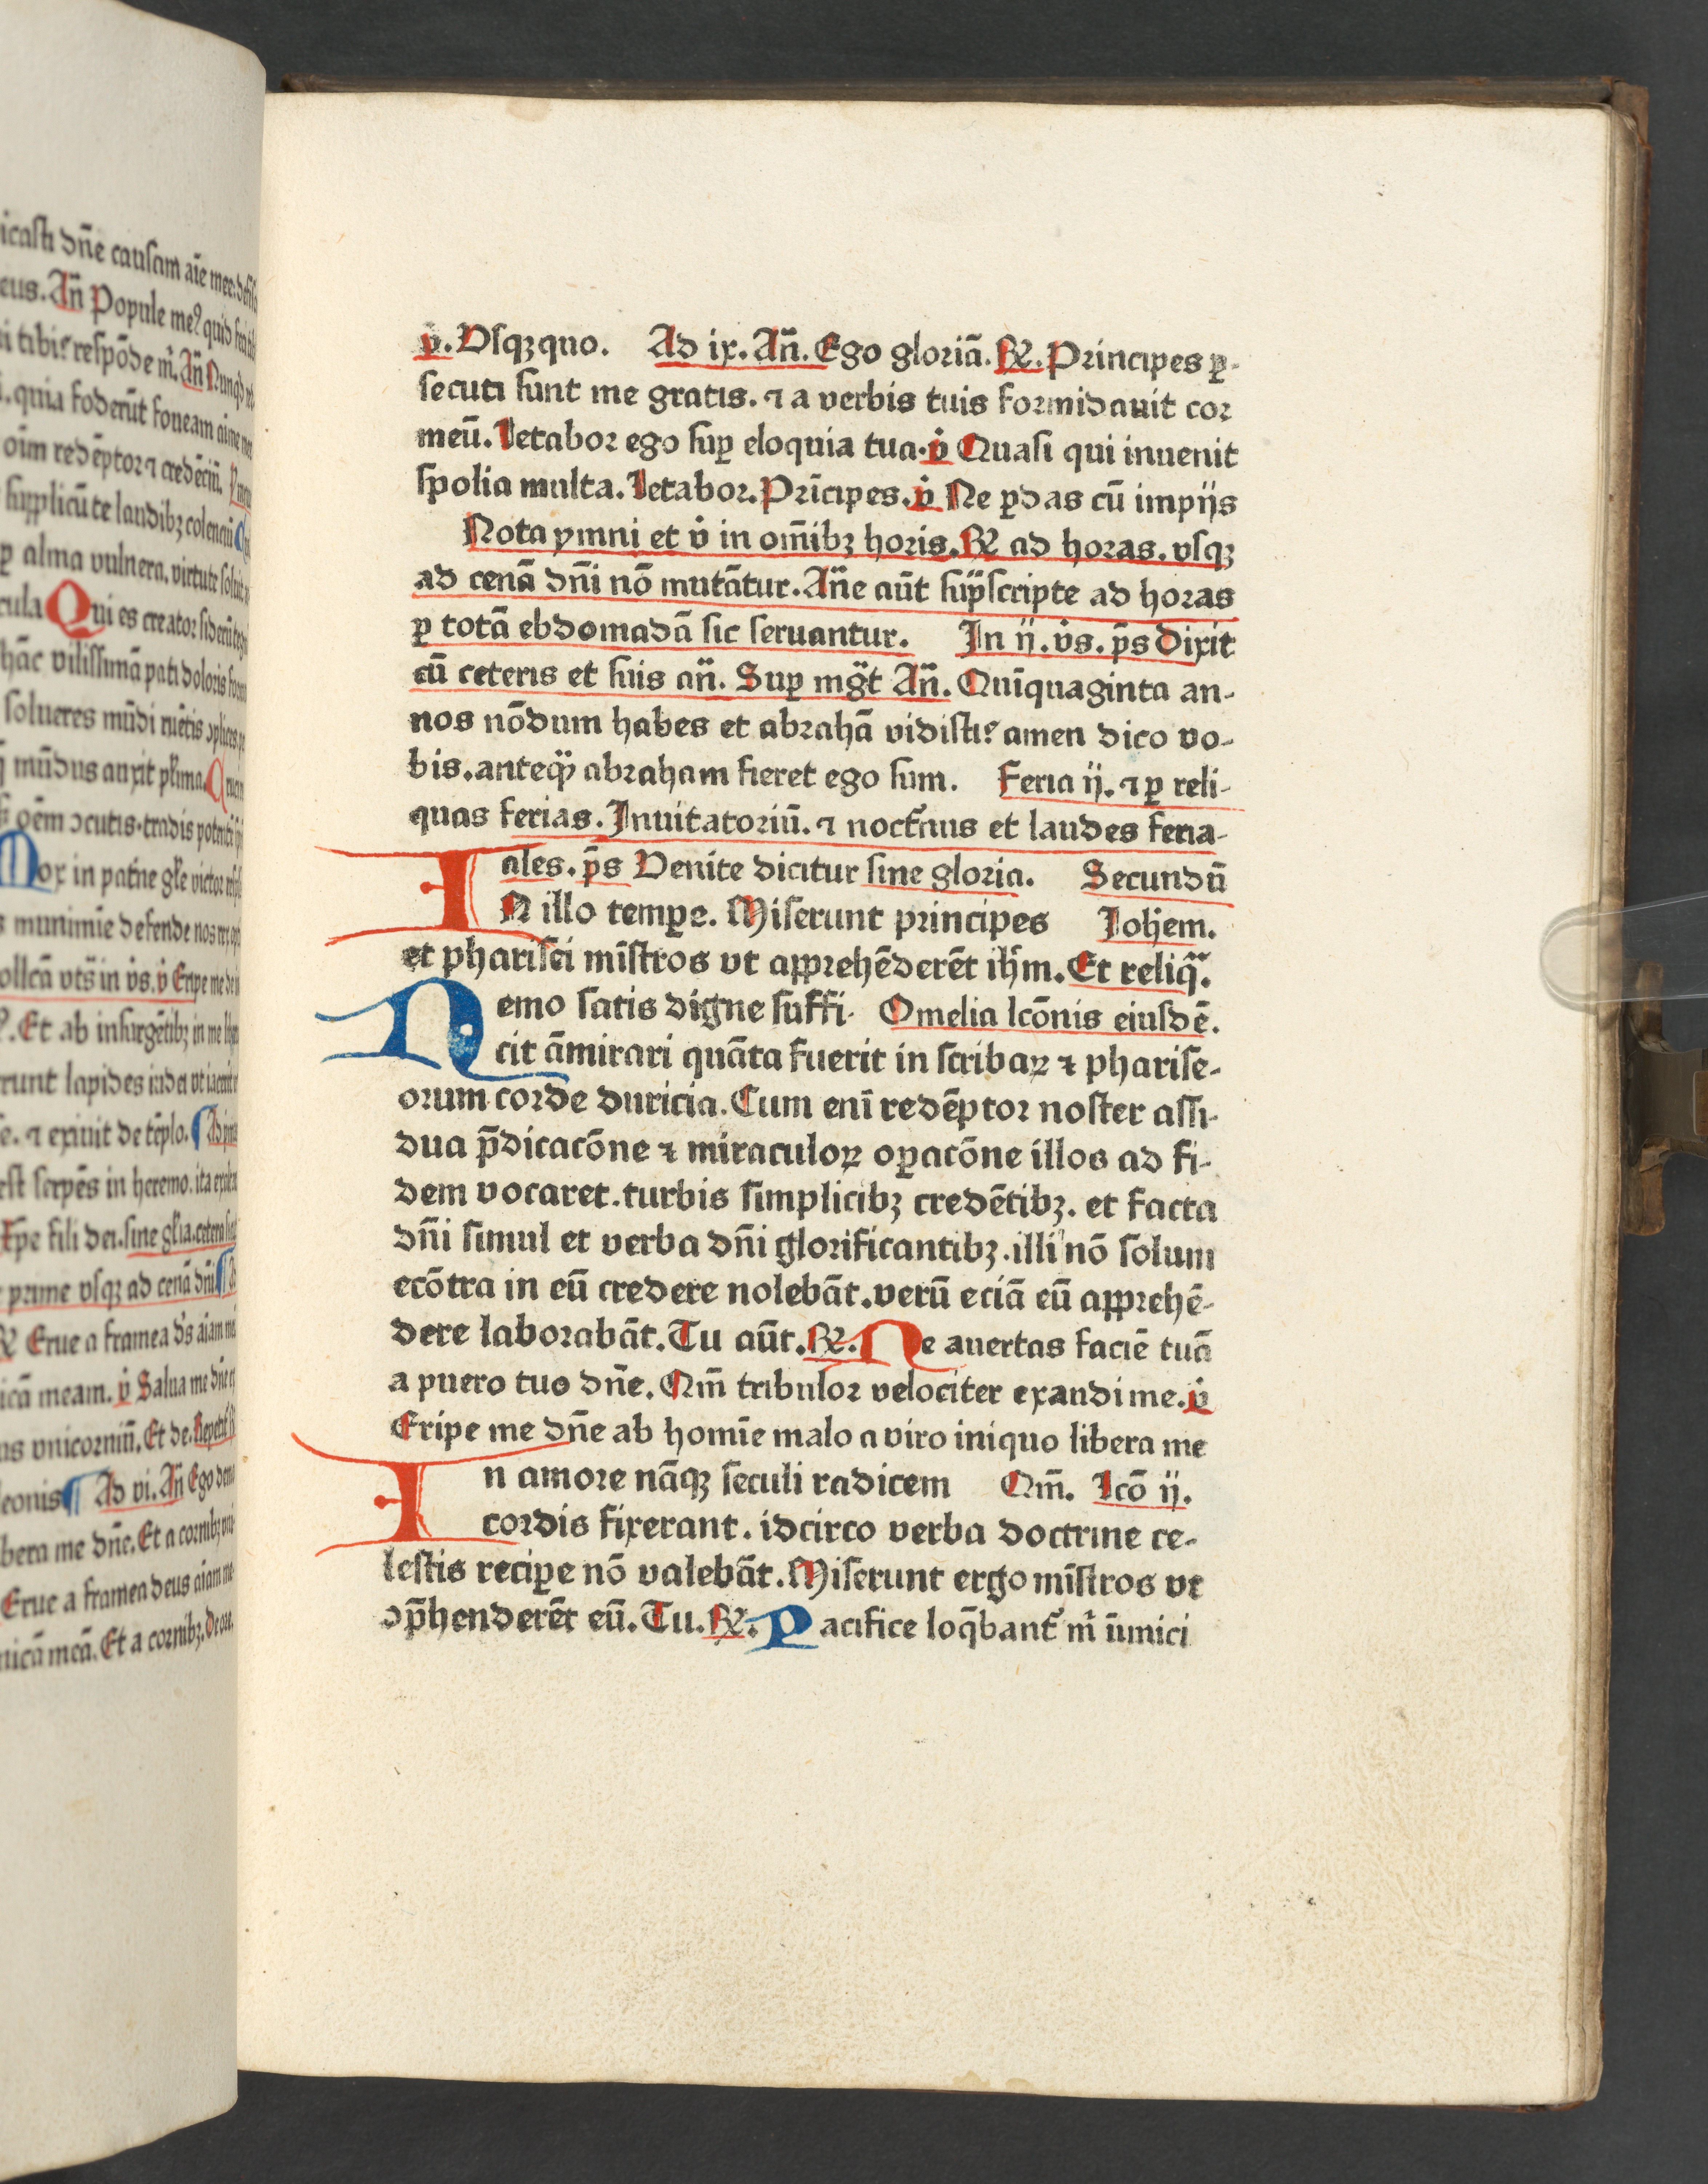 icasti dñe causam aīe mee
eus. Añ Popule meꝰ quid feci tibi
respōde m̄. Añ Nunqd
quia foderūt foueam
oīm redēptor ⁊ credēciū.
supplicū te laudibꝫ colenciū
alma vulnera. virtute
cula Qui es creator siderū
hāc vilissimā pati doloris
solueres mūdi
mūdus auxit
oēm tradis
Mox in patrie victor
munimie defende nos rex
in v̊s. v̊ Eripe me de
Et ab insurgētibꝫ in me
runt lapides iudei vt
⁊ exiuit de tēplo.
est serpēs in heremo. ita
xp̄e fili dei. sine gl̄ia. cetera
prime vsqꝫ ad cenā dñi
℟ Erue a framea
icā meam. v̊ Salua me
vnicorniū. Et de.
leonis Ad vi. Añ Ego
bera me dñe. Et a cornibꝫ
Erue a framea deus aīam
nicā meā. Et a cornibꝫ.
v̊. Vsqꝫquo. Ad ix. Añ. Ego gloriā. ℟. Principes ꝑ-
secuti sunt me gratis. ⁊ a verbis tuis formidauit cor
meū. Letabor ego suꝑ eloquia tua. v̊ Quasi qui inuenit
spolia multa. Letabor. Prīcipes. v̊ Ne ꝑdas cū impijs
Nota ymni et v̊ in om̄ibꝫ horis. ℟ ad horas. vsqꝫ
ad cenā dñi nō mutātur. Añe aūt sup̄scripte ad horas
ꝑ totā ebdomadā sic seruantur. In ij. v̊s. p̄s Dixit
cū ceteris et suis añ. Suꝑ mg̃t Añ. Quīquaginta an-
nos nōdum habes et abrahā vidisti? amen dico vo-
bis. anteqꝫ abraham fieret ego sum. Feria ij. ⁊ ꝑ reli-
quas ferias. Inuitatoriū. ⁊ noct̉nus et laudes feria-
ales. p̄s Venite dicitur sine gloria. Secundū
IN illo temꝑe. Miserunt principes Joh̄em.
et pharisei mīstros vt apprehēderēt ih̄m. Et reliqᷓ.
Nemo satis digne suffi- Omelia lcōnis eiusdē.
cit āmirari quāta fuerit in scribaꝝ ⁊ pharise-
orum corde duricia. Cum enī redēptor noster assi-
dua p̄dicacōne ⁊ miraculoꝝ oꝑacōne illos ad fi-
dem vocaret. turbis simplicibꝫ credētibꝫ. et facta
dñi simul et verba dñi glorificantibꝫ. illi nō solum
ecōtra in eū credere nolebāt. verū eciā eū apprehē-
dere laborabāt. Tu aūt. ℟. Ne auertas faciē tuā
a puero tuo dñe. Qm̄ tribulor velociter exaudi me. v̊
Eripe me dñe ab homīe malo a viro iniquo libera me
In amore nāqꝫ seculi radicem Qm̄. Lcō ij.
cordis fixerant. idcirco verba doctrine ce-
lestis reciꝑe nō valebāt. Miserunt ergo mīstros vt
ↄp̄henderēt eū. Tu. ℟. Pacifice loq̄bant̉ m̄ īimici